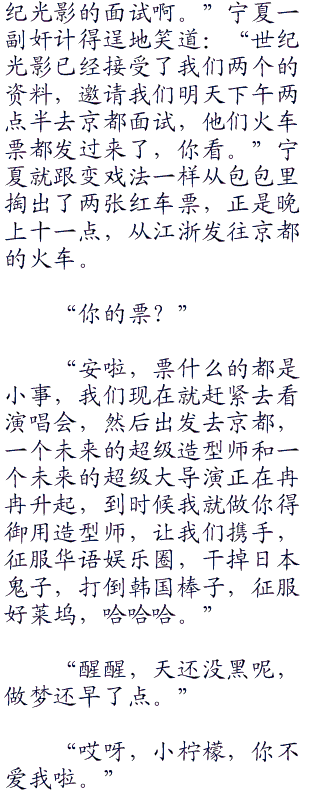 纪光影的面试啊。”宁夏一
副奸计得逞地笑道：“世纪
光影已经接受了我们两个的
资料，邀请我们明天下午两
点半去京都面试，他们火车
票都发过来了，你看。”宁
夏就跟变戏法一样从包包里
掏出了两张红车票，正是晚
上十一点，从江浙发往京都
的火车。
“你的票？”
“安啦，票什么的都是
小事，我们现在就赶紧去看
演唱会，然后出发去京都，
一个未来的超级造型师和一
个未来的超级大导演正在冉
冉升起，到时候我就做你得
御用造型师，让我们携手，
征服华语娱乐圈，干掉日本
鬼子，打倒韩国棒子，征服
好莱坞，哈哈哈。”
“醒醒，天还没黑呢，
做梦还早了点。”
“哎呀，小柠檬，你不
爱我啦。”